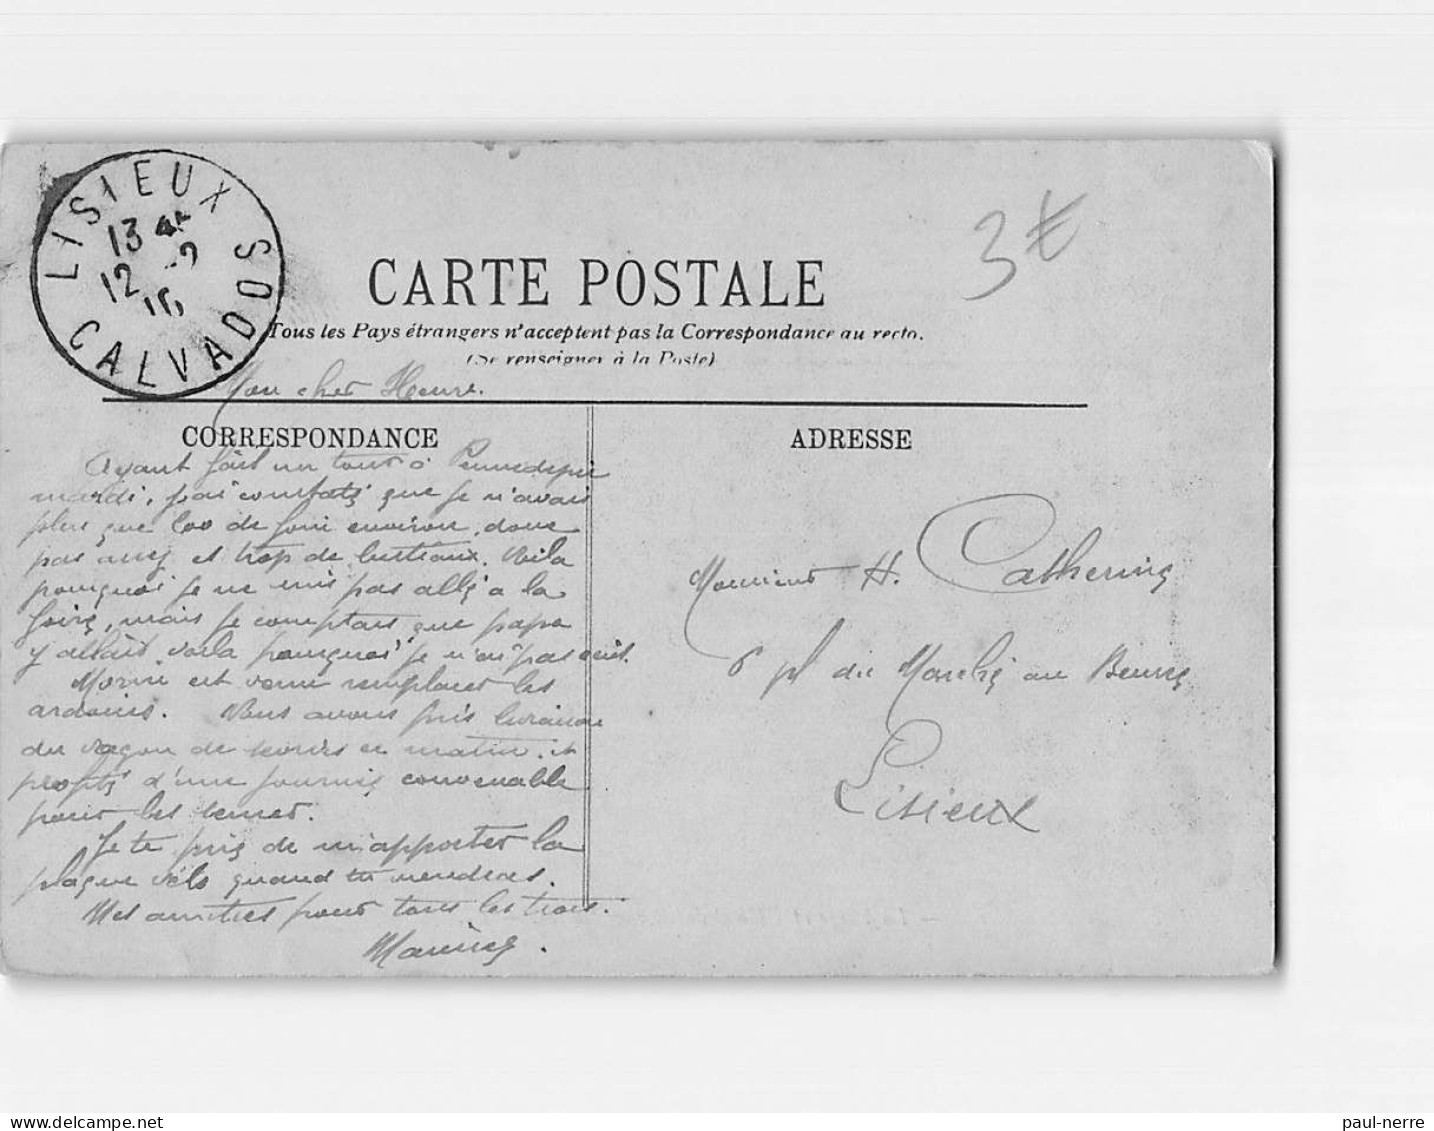 LISIEUX
13 45
12 -2
10
CALVADOS
3€
CARTE POSTALE
Tous les Pays étrangers n'acceptent pas la Correspondance au recto.
(Se renseigner à la Poste)
Mon cher Henri.
CORRESPONDANCE
ADRESSE
Ayant fait un tour à Pennedepie
mardi, j'ai constaté que je n'avais
plus que 600 de foin environ, donc
pas assez et trop de bestiaux. Voila
pourquoi je ne suis pas allé à la
foire, mais je comptais que papa
y allait, voila pourquoi je n'ai pas écrit.
Morin est venu remplacer les
ardoises. Nous avons pris livraison
du wagon de ce matin, et
profité d'une journée convenable
pour les rentrer.
Je te prie de m'apporter la
plaque vélo quand tu viendras.
Mes amitiés pour tous les trois.
Maurice.
Monsieur H. Catherine
6 pl du Marché au Beurre
Lisieux
paul-nerre